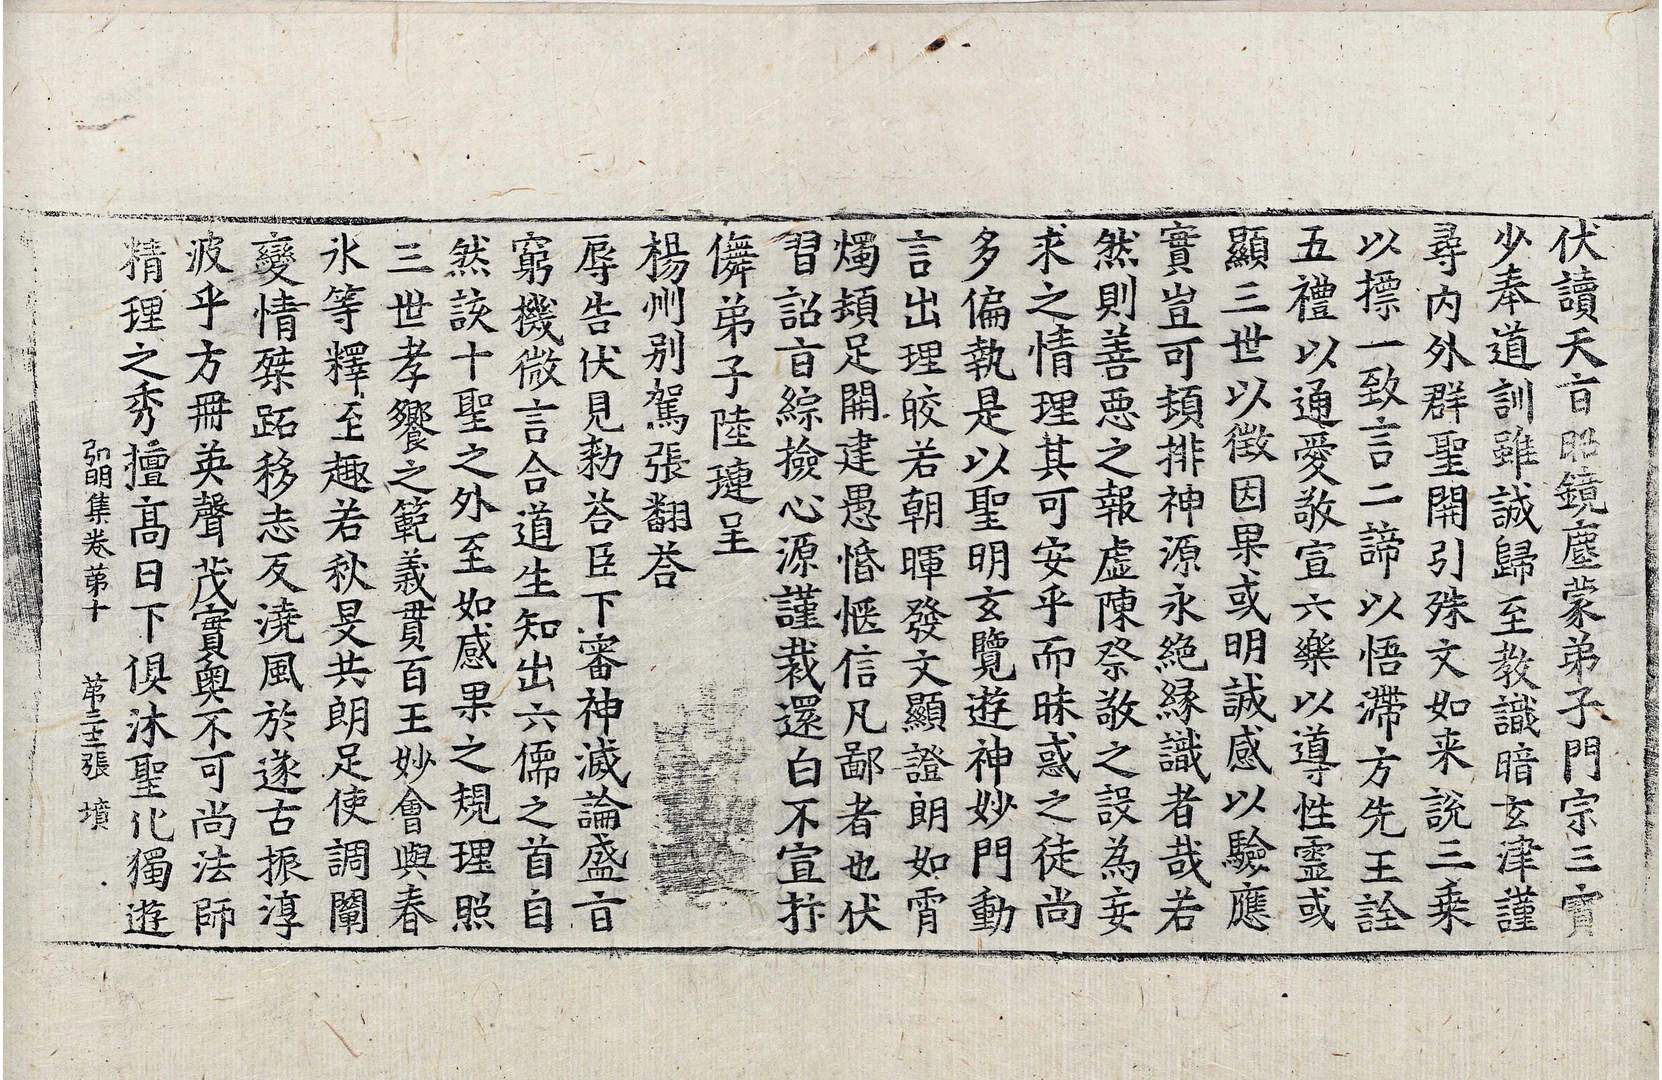 伏讀天㫖昭鏡塵蒙弟子門宗三寶
少奉道訓雖誠歸至教識暗玄津謹
尋内外群聖開引殊文如来說三乗
以摽一致言二諦以悟滯方先王詮
五禮以通愛敬宣六樂以導性靈或
顯三世以徵因果或明誠感以驗應
實豈可頓排神源永絶緣識者哉若
然則善惡之報虛陳祭敬之設為妄
求之情理其可安乎而昧惑之徒尚
多偏執是以聖明玄覽遊神妙門動
言出理皎若朝暉發文顯證朗如霄
燭頓足開建愚惛愜信凡鄙者也伏
習詔㫖綜撿心源謹裁還白不宣拃
儛弟子陸璉呈
楊州别駕張翻荅
辱告伏見勑荅臣下審神滅論盛㫖
窮機微言合道生知出六儒之首自
然該十聖之外至如感果之規理照
三世孝饗之範義貫百王妙會與春
氷等釋至趣若秋旻共朗足使調闡
變情桀跖移志反澆風於遂古振淳
波乎方冊英聲茂實奥不可尚法師
精理之秀擅髙日下俱沐聖化獨遊
弘明集卷苐十 苐三十三張 墳